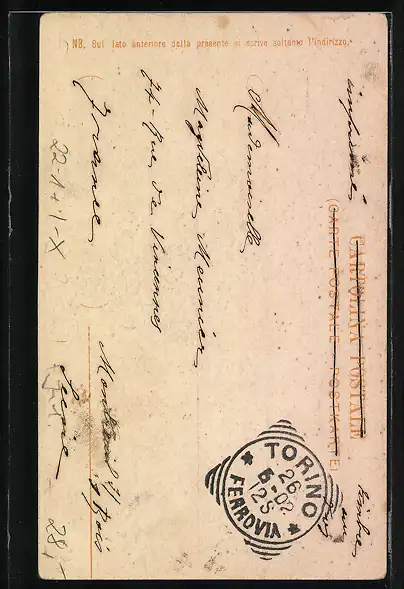 NB. Sul lato anteriore della presente si scrive soltanto l'indirizzo.
imprimé
CARTOLINA POSTALE
(CARTE POSTALE - POSTKARTE)
timbre
au
Mademoiselle
Magdeleine Meunier
74 - Rue de Vincennes
Montreuil s/ Bois
(France)
Seine
22-1+1-X
28,-
TORINO
26
5-02
12S
FERROVIA